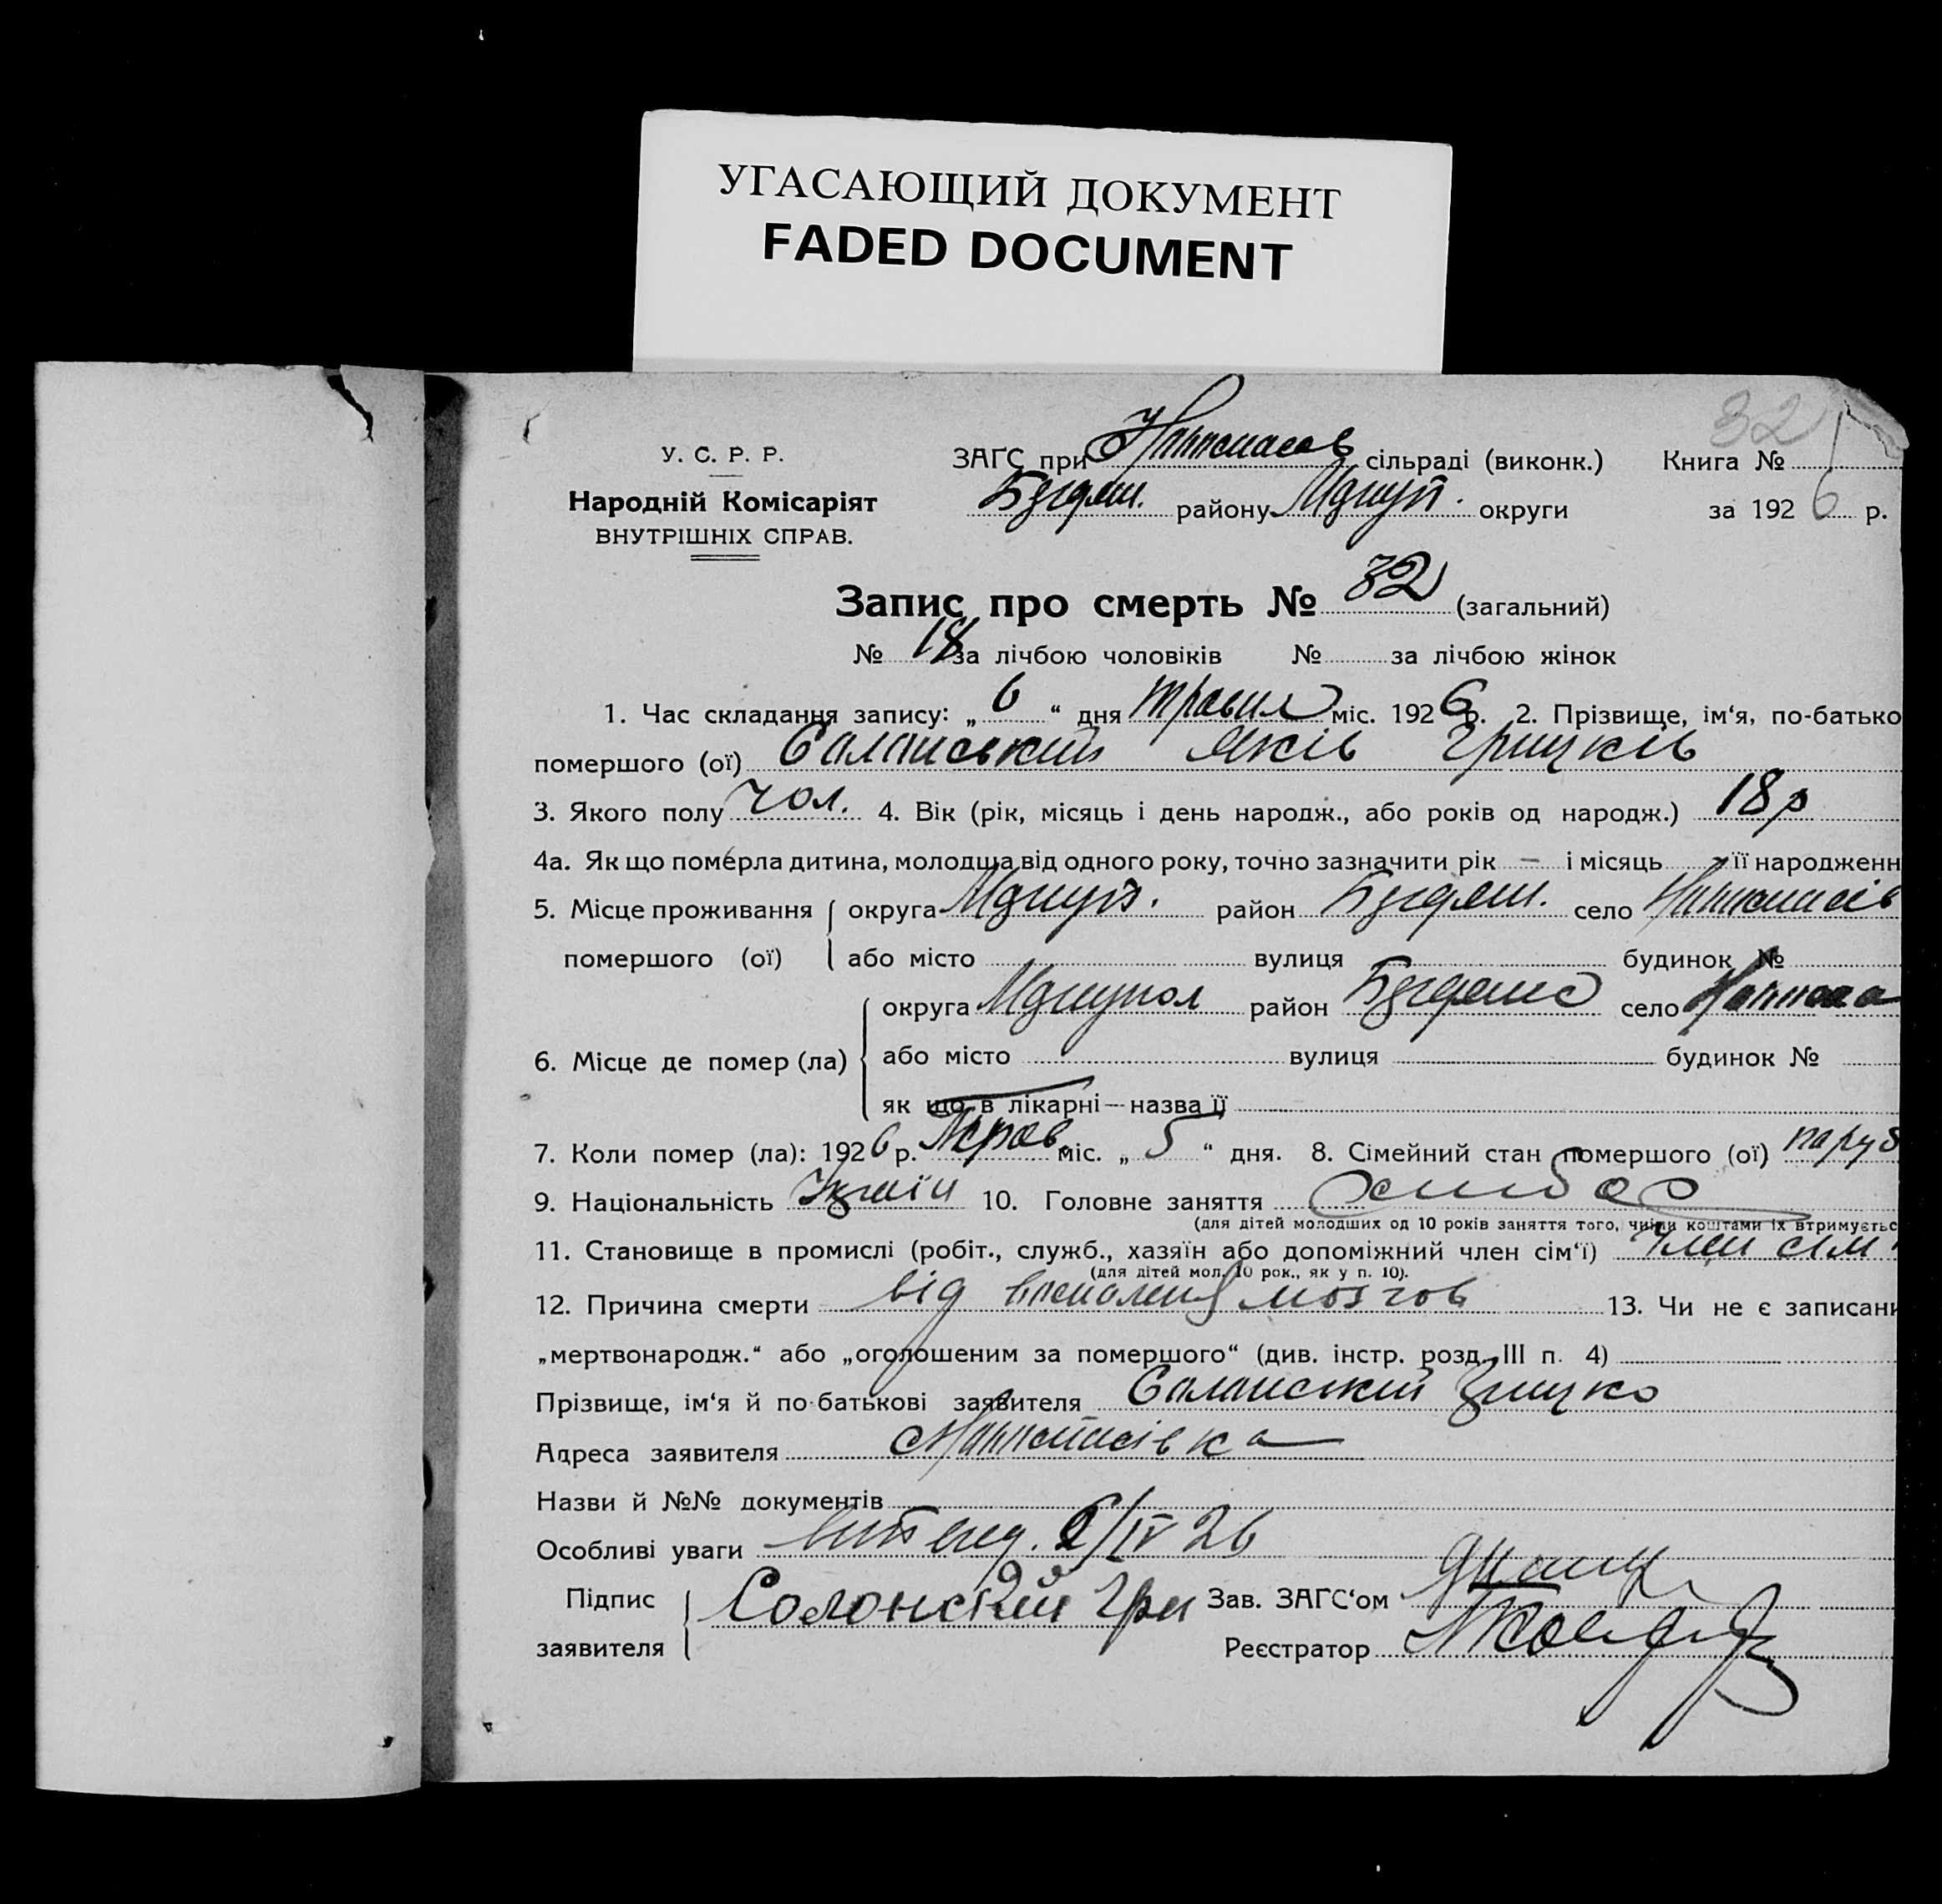 УГАСАЮЩИЙ ДОКУМЕНТ
FADED DOCUMENT
32
У. С. Р. Р.
Народній Комісаріят
ВНУТРІШНІХ СПРАВ.
ЗАГС при сільраді (виконк.) Книга №
району округи за 1926 р.
Запис про смерть № 32 (загальний)
№ 18 за лічбою чоловіків № за лічбою жінок
1. Час складання запису: „ 6 “ дня травня міс. 1926 р. 2. Прізвище, ім‘я, по-батько
помершого (ої) Салонський Яків Грицків
3. Якого полу чол. 4. Вік (рік, місяць і день народж., або років од народж.) 18 р
4а. Як що померла дитина, молодша від одного року, точно зазначити рік – і місяць її народженн
5. Місце проживання округа район село
помершого (ої) або місто вулиця будинок №
6. Місце де помер (ла) округа район село
або місто вулиця будинок №
як що в лікарні — назва її
7. Коли помер (ла): 1926 р. Трав. міс. „ 5 “ дня. 8. Сімейний стан помершого (ої) паруб
9. Національність Україн 10. Головне заняття хлібор
(для дітей молодших од 10 років заняття того, чиїми коштами їх втримуєтьс
11. Становище в промислі (робіт., служб., хазяїн або допоміжний член сім‘ї) член сім
(для дітей мол. 10 рок., як у п. 10).
12. Причина смерти від воспаленя мозгов 13. Чи не є записани
„мертвонародж.“ або „оголошеним за помершого“ (див. інстр. розд. III п. 4)
Прізвище, ім‘я й по-батькові заявителя Салонский Грицко
Адреса заявителя
Назви й №№ документів
Особливі уваги /IV 26
Підпис заявителя Солонский Гри Зав. ЗАГС‘ом
Реєстратор